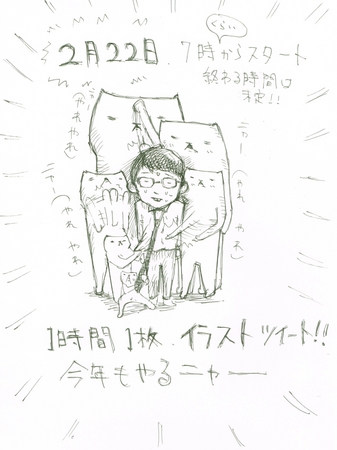 2月22日 7時からスタート
くらい
終わる時間は
未定!!
ニャー
(やれやれ)
ニャー
(やれやれ)
ニャー
(やれやれ)
1時間1枚 イラストツイート!!
今年もやるニャー